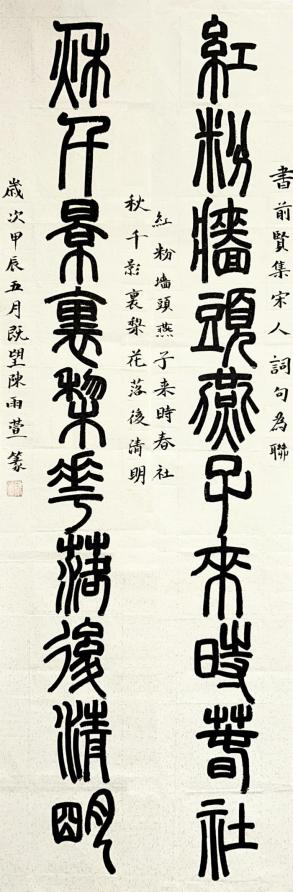 書前賢集宋人詞句為聯
紅粉牆頭燕子來時春社
紅粉墻頭燕子来時春社
秋千影裏梨花落後清明
秋千景裏棃花落後清明
歲次甲辰五月既望陳雨萱篆